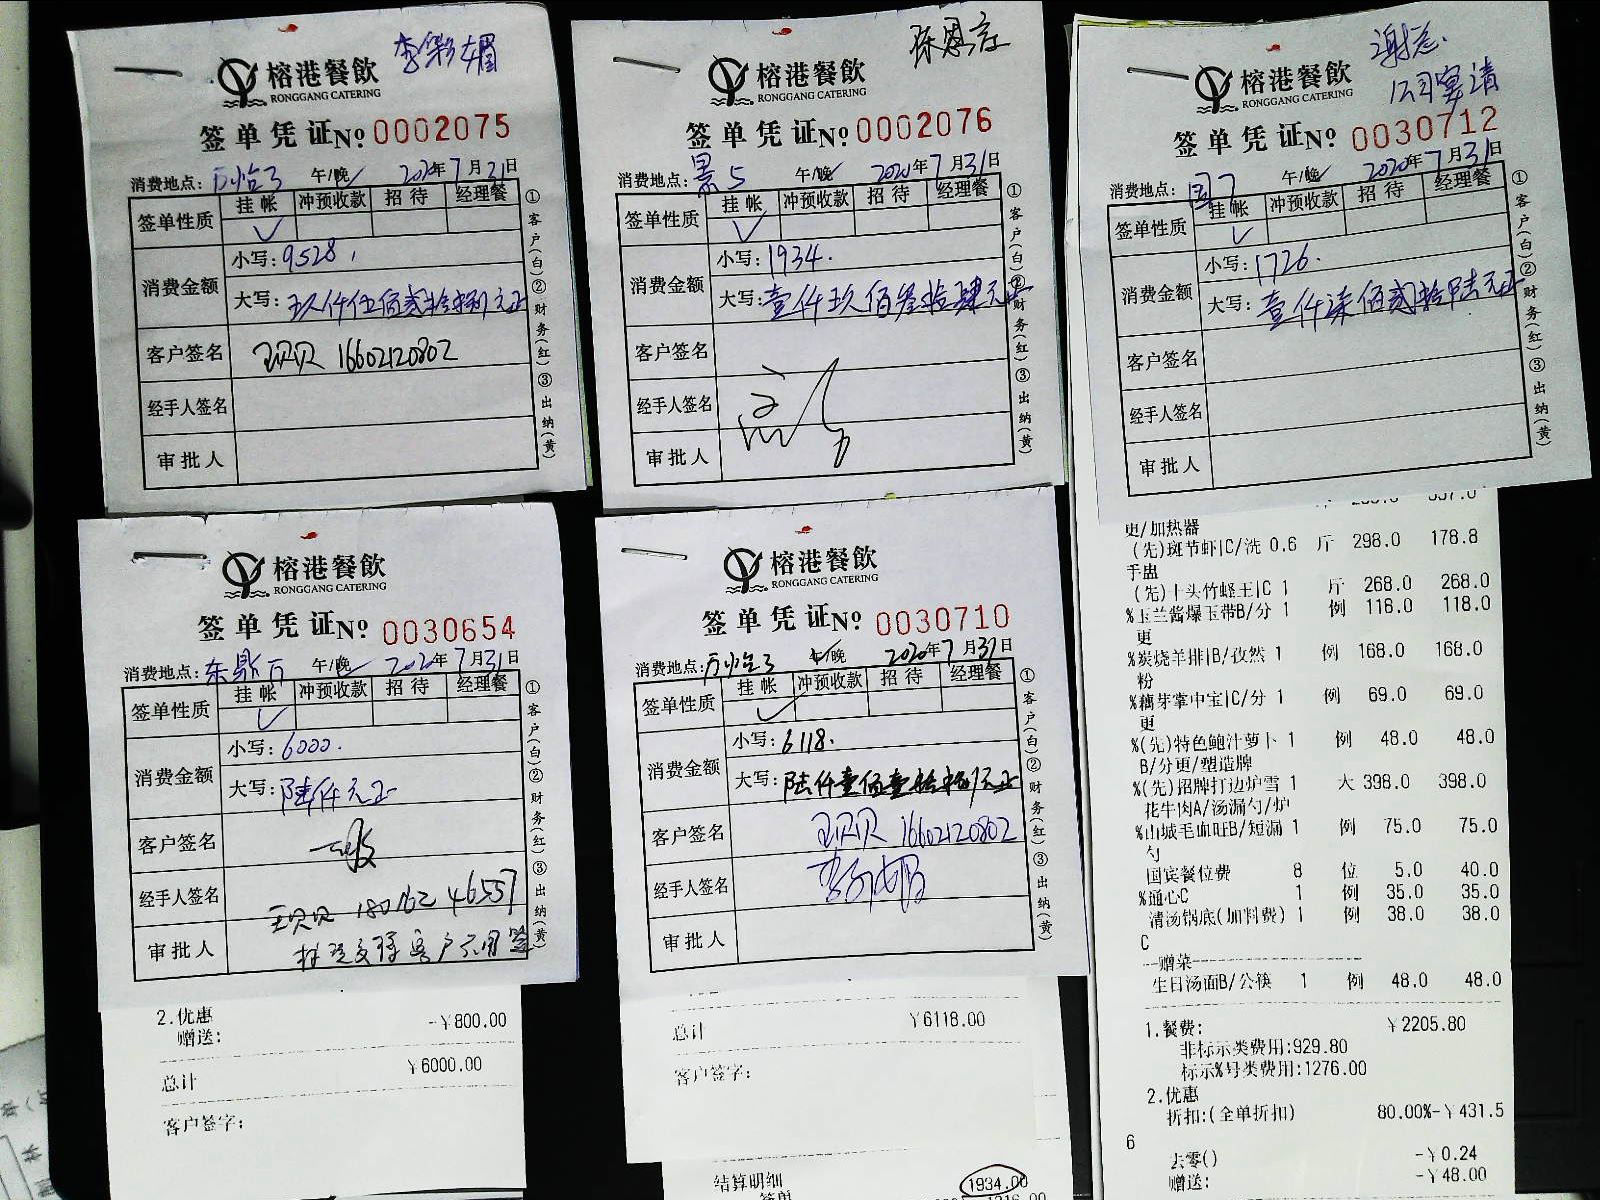 李彩媚
榕港餐飲
RONGGANG CATERING
签单凭证№ 0002075
消费地点: 万怡3 午/晚 2020年7月31日
签单性质 挂帐 冲预收款 招待 经理餐
✓
消费金额 小写: 9528.
大写: 玖仟伍佰贰拾捌元正
客户签名 16602120802
经手人签名
审批人
①客户(白)②财务(红)③出纳(黄)
榕港餐飲
RONGGANG CATERING
签单凭证№ 0002076
消费地点: 景5 午/晚 2020年7月31日
签单性质 挂帐 冲预收款 招待 经理餐
✓
消费金额 小写: 1934.
大写: 壹仟玖佰叁拾肆元正
客户签名
经手人签名
审批人
①客户(白)②财务(红)③出纳(黄)
谢总.
公司宴请
榕港餐飲
RONGGANG CATERING
签单凭证№ 0030712
消费地点: 国7 午/晚 2020年7月31日
签单性质 挂帐 冲预收款 招待 经理餐
✓
消费金额 小写: 1726.
大写: 壹仟柒佰贰拾陆元正
客户签名
经手人签名
审批人
①客户(白)②财务(红)③出纳(黄)
榕港餐飲
RONGGANG CATERING
签单凭证№ 0030654
消费地点: 东鼎 午/晚 2020年7月31日
签单性质 挂帐 冲预收款 招待 经理餐
✓
消费金额 小写: 6000.
大写: 陆仟元正
客户签名
经手人签名
审批人
①客户(白)②财务(红)③出纳(黄)
2.优惠
赠送: -¥800.00
总计 ¥6000.00
客户签字:
榕港餐飲
RONGGANG CATERING
签单凭证№ 0030710
消费地点: 万怡3 午/晚 2020年7月31日
签单性质 挂帐 冲预收款 招待 经理餐
✓
消费金额 小写: 6118.
大写: 陆仟壹佰壹拾捌元正
客户签名 16602120802
经手人签名
审批人
①客户(白)②财务(红)③出纳(黄)
总计 ¥6118.00
客户签字:
结算明细 1934.00
签单
更/加热器
(先)斑节虾|C/洗 0.6 斤 298.0 178.8
手盅
(先)十头竹蛏王|C 1 斤 268.0 268.0
%玉兰酱爆玉带B/分 1 例 118.0 118.0
更
%炭烧羊排|B/孜然 1 例 168.0 168.0
粉
%藕芽掌中宝|C/分 1 例 69.0 69.0
更
%(先)特色鲍汁萝卜 1 例 48.0 48.0
B/分更/塑造牌
%(先)招牌打边炉雪 1 大 398.0 398.0
花牛肉A/汤漏勺/炉
%山城毛血旺B/短漏 1 例 75.0 75.0
勺
国宾餐位费 8 位 5.0 40.0
%通心C 1 例 35.0 35.0
清汤锅底(加料费) 1 例 38.0 38.0
C
---赠菜---
生日汤面B/公筷 1 例 48.0 48.0
1.餐费: ¥2205.80
非标示类费用:929.80
标示%号类费用:1276.00
2.优惠
折扣:(全单折扣) 80.00%-¥431.5
6
去零() -¥0.24
赠送: -¥48.00